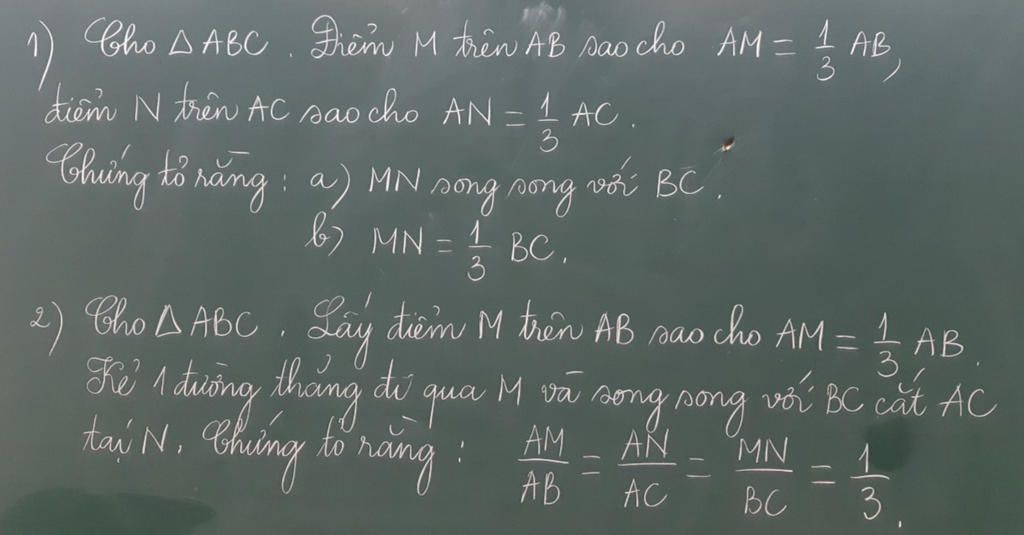 1) Cho △ABC. Điểm M trên AB sao cho AM = 1/3 AB,
điểm N trên AC sao cho AN = 1/3 AC.
Chứng tỏ rằng: a) MN song song với BC.
b) MN = 1/3 BC.
2) Cho △ABC. Lấy điểm M trên AB sao cho AM = 1/3 AB.
Kẻ 1 đường thẳng đi qua M và song song với BC cắt AC
tại N. Chứng tỏ rằng: AM/AB = AN/AC = MN/BC = 1/3.